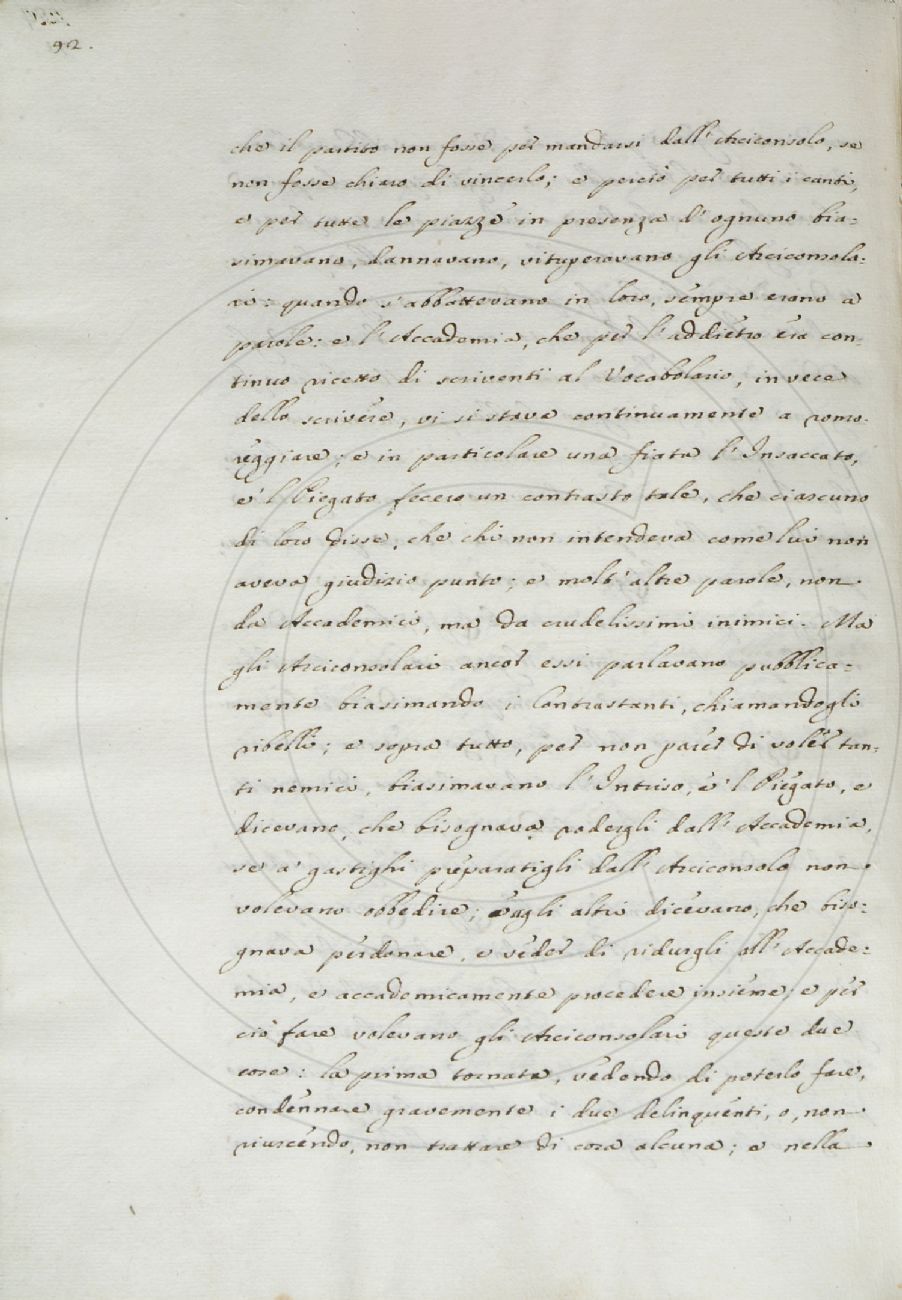 92.
che il partito non fosse per mandarsi dall' Arciconsolo, se
non fosse chiaro di vincerlo; e perciò per tutti i canti,
e per tutte le piazze in presenza d' ognuno bia=
simavano, dannavano, vituperavano gli Arciconsola=
ri: quando s' abbattevano in loro, sempre erano a
parole: e l' Accademia, che per l' addietro era con=
tinuo ricetto di scriventi al Vocabolario, in vece
dello scrivere, vi si stava continuamente a romo=
reggiare; e in particolare una fiata l' Insaccato,
e 'l Piegato fecero un contrasto tale, che ciascuno
di loro disse, che chi non intendeva come lui non
aveva giudizio punto; e molt' altre parole, non
da Accademici, ma da crudelissimi inimici. Ma
gli Arciconsolari ancor essi parlavano pubblica=
mente biasimando i Contrastanti, chiamandogli
ribelli; e sopra tutto, per non parer di voler tan=
ti nemici, biasimavano l' Intriso, e 'l Piegato, e
dicevano, che bisognava radergli dall' Accademia,
se a' gastighi preparatigli dall' Arciconsolo non
volevano obbedire; e agli altri dicevano, che biso=
gnava perdonare, e veder di ridurgli all' Accade=
mia, e accademicamente procedere insieme, e per
ciò fare volevano gli Arciconsolari queste due
cose: la prima tornata, vedendo di poterlo fare,
condennare gravemente i due delinquenti, o, non
riuscendo, non trattare di cosa alcuna; e nella